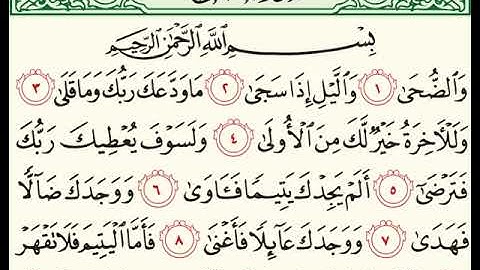 بِسْمِ اللَّهِ الرَّحْمَٰنِ الرَّحِيمِ
وَالضُّحَىٰ ١ وَاللَّيْلِ إِذَا سَجَىٰ ٢ مَا وَدَّعَكَ رَبُّكَ وَمَا قَلَىٰ ٣
وَلَلْآخِرَةُ خَيْرٌ لَّكَ مِنَ الْأُولَىٰ ٤ وَلَسَوْفَ يُعْطِيكَ رَبُّكَ
فَتَرْضَىٰ ٥ أَلَمْ يَجِدْكَ يَتِيمًا فَـَٔاوَىٰ ٦ وَوَجَدَكَ ضَآلًّا
فَهَدَىٰ ٧ وَوَجَدَكَ عَآئِلًا فَأَغْنَىٰ ٨ فَأَمَّا الْيَتِيمَ فَلَا تَقْهَرْ